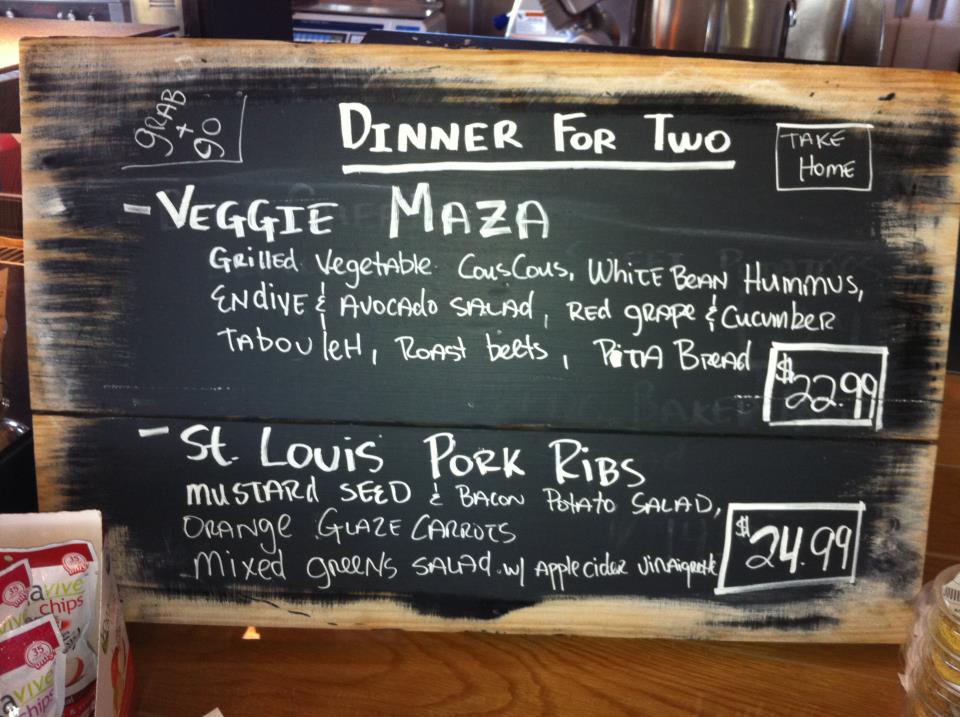 GRAB
+
GO
DINNER FOR TWO
TAKE
HOME
- VEGGIE MAZA
Grilled Vegetable CousCous, WHITE BEAN HUMMUS,
ENDIVE & AVOCADO SALAD, RED GRAPE & CUCUMBER
TABOULEH, ROAST beets, PITA BREAD
$22.99
- St. LOUIS PORK RIBS
MUSTARD SEED & BACON POTATO SALAD,
ORANGE GLAZE CARROTS
Mixed greens SALAD w/ Apple cider vinaigrette
$24.99
avive
chips
35
avive
chips
35